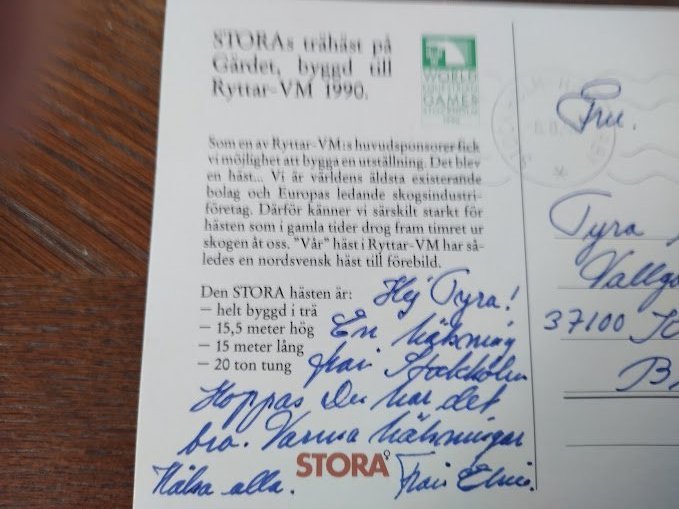 STORAs trähäst på
Gärdet, byggd till
Ryttar-VM 1990.
WORLD
EQUESTRIAN
GAMES
STOCKHOLM
1990
Som en av Ryttar-VM:s huvudsponsorer fick
vi möjlighet att bygga en utställning. Det blev
en häst... Vi är världens äldsta existerande
bolag och Europas ledande skogsindustri-
företag. Därför känner vi särskilt starkt för
hästen som i gamla tider drog fram timret ur
skogen åt oss. "Vår" häst i Ryttar-VM har så-
ledes en nordsvensk häst till förebild.
Den STORA hästen är:
– helt byggd i trä
– 15,5 meter hög
– 15 meter lång
– 20 ton tung
Hej Tyra!
En hälsning
från Stockholm
Hoppas Du har det
bra. Varma hälsningar
Hälsa alla. från
STORA
Fru.
Tyra
37100